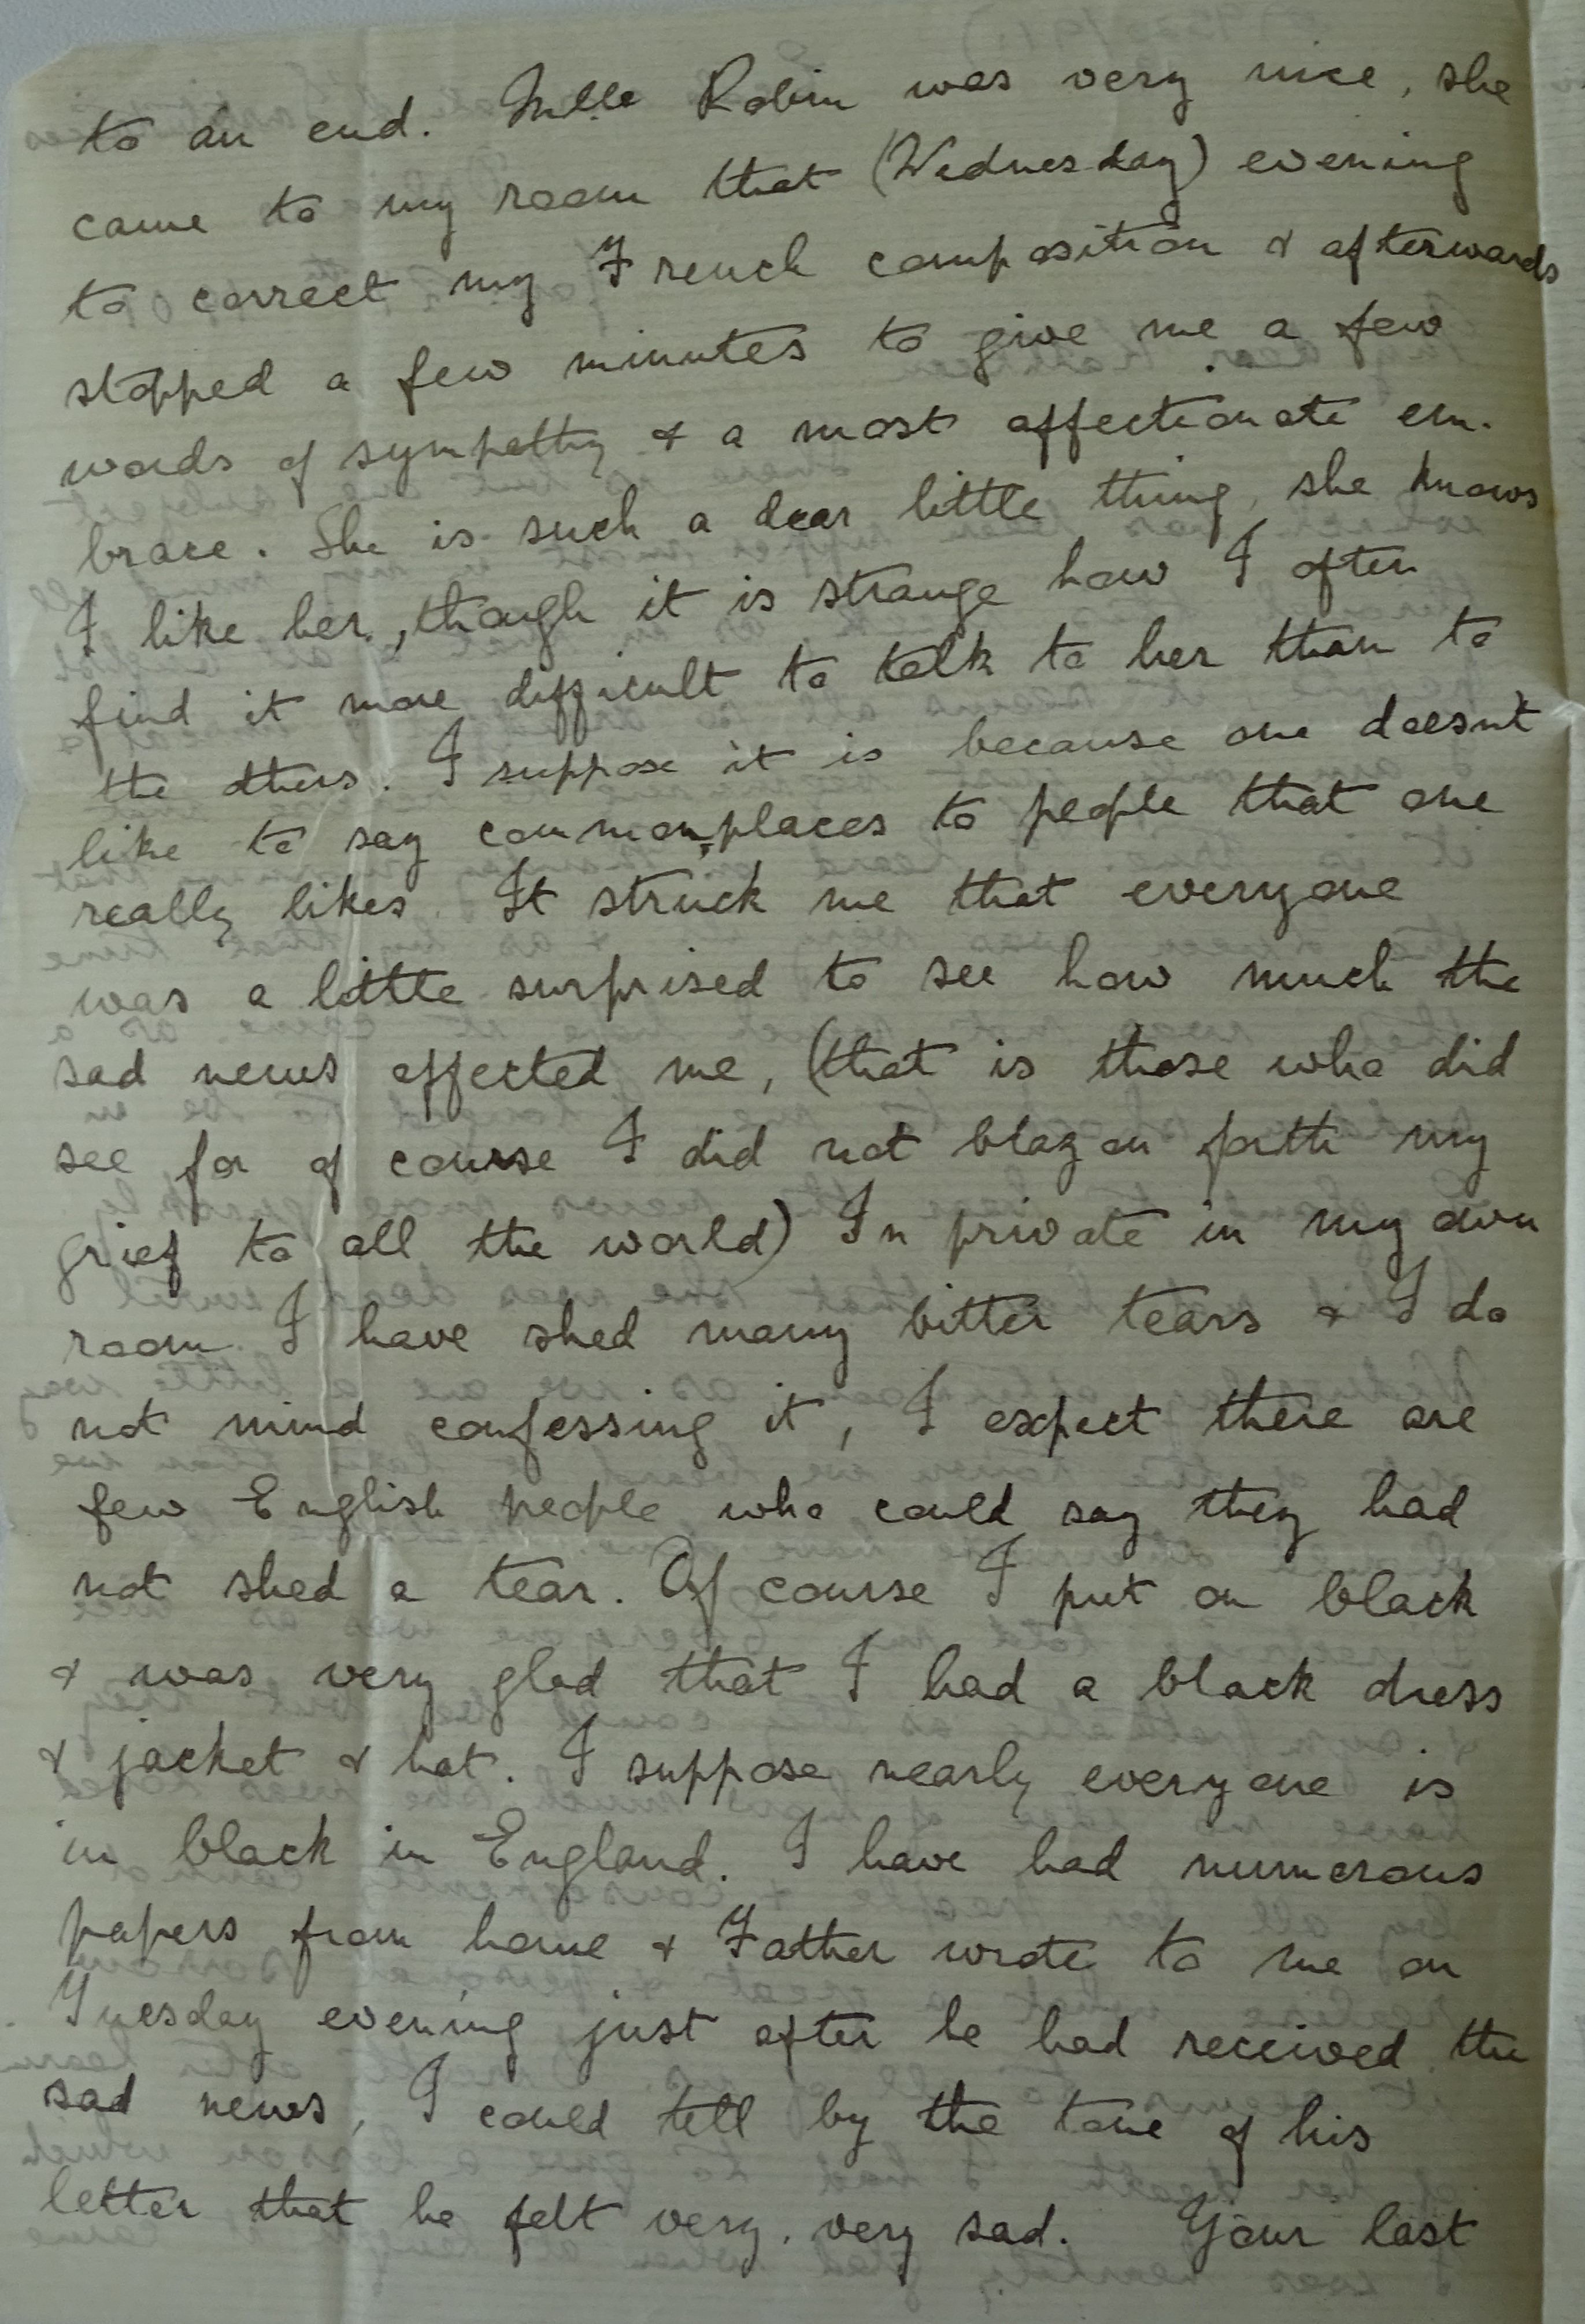 to an end. Mlle Robin was very nice, she
came to my room that (Wednesday) evening
to correct my French composition & afterwards
stopped a few minutes to give me a few
words of sympathy & a most affectionate em-
brace. She is such a dear little thing, she knows
I like her, though it is strange how I often
find it more difficult to talk to her than to
the others. I suppose it is because one doesn't
like to say commonplaces to people that one
really likes. It struck me that everyone
was a little surprised to see how much the
sad news affected me, (that is those who did
see for of course I did not blazon forth my
grief to all the world) In private in my own
room I have shed many bitter tears & I do
not mind confessing it, I expect there are
few English people who could say they had
not shed a tear. Of course I put on black
& was very glad that I had a black dress
& jacket & hat. I suppose nearly everyone is
in black in England. I have had numerous
papers from home & Father wrote to me on
Tuesday evening just after he had received the
sad news, I could tell by the tone of his
letter that he felt very, very sad. Your last